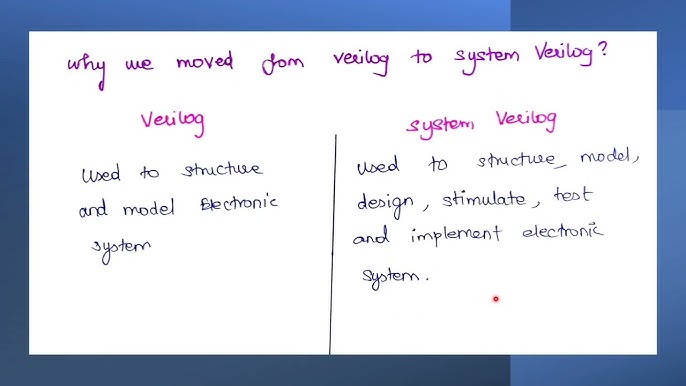 why we moved from verilog to system Verilog?
Verilog
used to structure
and model Electronic
system
system Verilog
used to structure, model,
design, stimulate, test
and implement electronic
system.